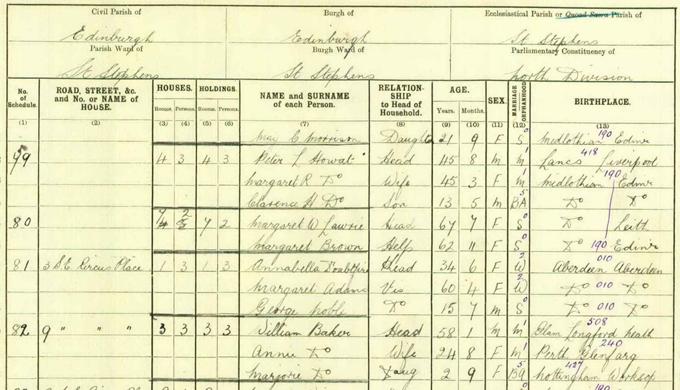 Civil Parish of Burgh of Ecclesiastical Parish or Quoad Sacra Parish of
Edinburgh Edinburgh St Stephens
Parish Ward of Burgh Ward of Parliamentary Constituency of
St Stephens St Stephens North Division
No. of Schedule. ROAD, STREET, &c. and No. or NAME of HOUSE. HOUSES. HOLDINGS. NAME and SURNAME of each Person. RELATION-SHIP to Head of Household. AGE. SEX. MARRIAGE or ORPHANHOOD BIRTHPLACE.
Houses. Persons. Rooms. Persons. Years. Months.
(1) (2) (3) (4) (5) (6) (7) (8) (9) (10) (11) (12) (13)
May C Morrison Daughter 21 9 F S 0 Midlothian 190 Edinr
79 4 3 4 3 Peter L Howat Head 45 8 M M 1 Lancs 418 Liverpool
Margaret R Do Wife 45 3 F M 1 Midlothian 190 Edinr
Clarence H Do Son 13 5 M BA 5 Do Do
80 7 2 7 2 Margaret W Lawrie Head 67 7 F S 0 Do Leith
Margaret Brown Help 62 11 F S 0 Do 190 Edinr
81 3 S.E Circus Place 1 3 1 3 Annabella Doubtfire Head 34 6 F W 2 Aberdeen 010 Aberdeen
Margaret Adams Vis 60 4 F W 2 Do 010 Do
George Noble Do 15 7 M S 0 Do 010 Do
82 9 " " " 3 3 3 3 William Baker Head 58 1 M M 1 508 Longford
Annie Do Wife 24 8 F M 1 Perth 240 Glenfarg
Marjorie Do Daug 2 9 F BA 5 Nottingham 427 Worksop